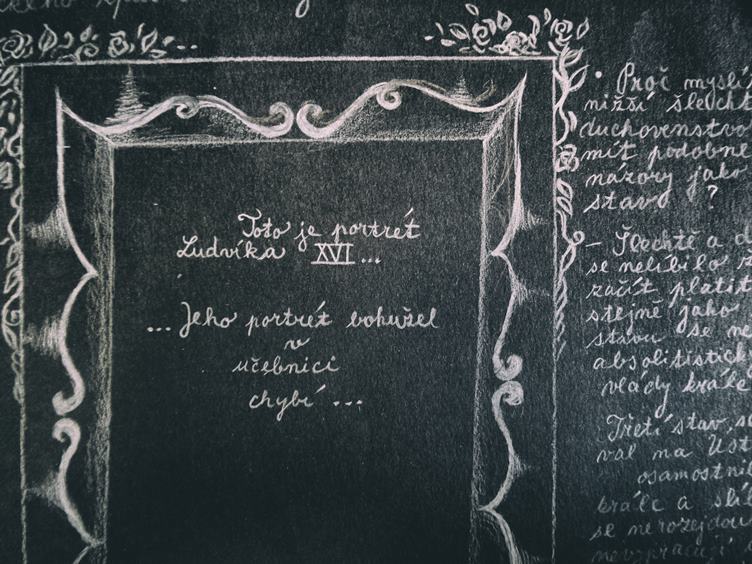 Toto je portrét
Ludvíka XVI...
... Jeho portrét bohužel
v
učebnici
chybí ...
• Proč myslí
nižší šlech
duchovenstvo
mít podobné
názory jako
stavo ?
- Šlechtě a
se nelíbilo
začít platit
stejně jako
stavu se ne
absolitistick
vlády krále
Třetí stav, s
val na Úst
osamostni
krále a sli
se nerozejdou